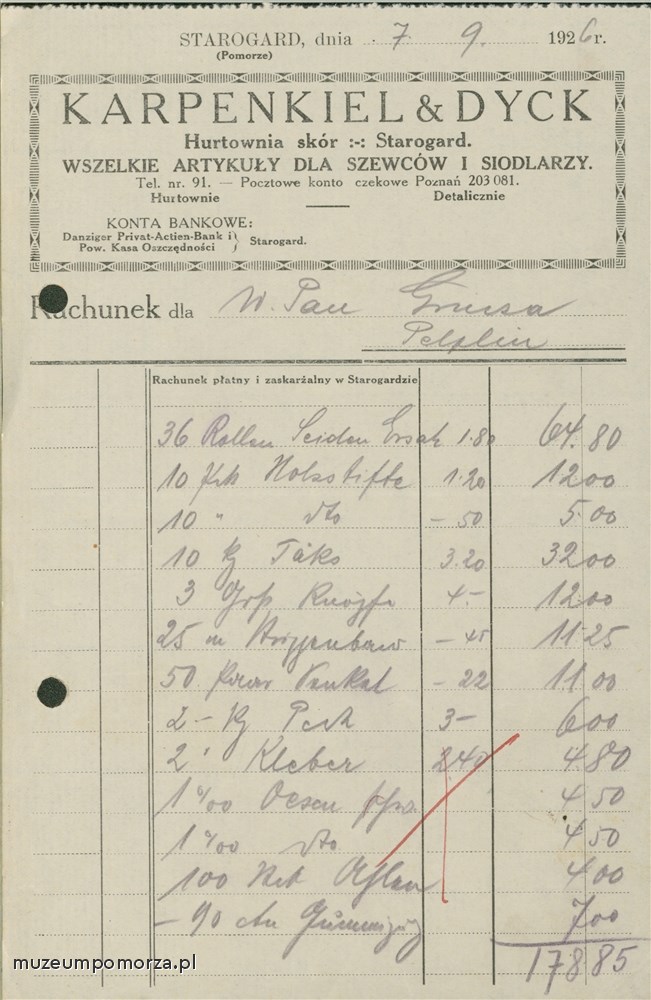 STAROGARD, dnia 7 9. 1926 r.
(Pomorze)
KARPENKIEL & DYCK
Hurtownia skór :-: Starogard.
WSZELKIE ARTYKUŁY DLA SZEWCÓW I SIODLARZY.
Tel. nr. 91. — Pocztowe konto czekowe Poznań 203 081.
Hurtownie Detalicznie
KONTA BANKOWE:
Danziger Privat-Actien-Bank i
Pow. Kasa Oszczędności } Starogard.
Rachunek dla W. Pan
Pelplin
Rachunek płatny i zaskarżalny w Starogardzie
36 Rollen Seiden Ersatz 1.80 64.80
10 Holzstifte 1.20 12 00
10 " dto - 50 5.00
10 kg Täks 3.20 32 00
3 Knöpfe 4.- 12 00
25 m - 45 11 25
50 Paar Senkel - 22 11 00
2 - kg Pech 3 - 6 00
2 " Kleber 2 40 4 80
1 %00 Oesen 4 50
1 %00 dto 4 50
100 4 00
- 90 7 00
178 85
muzeumpomorza.pl